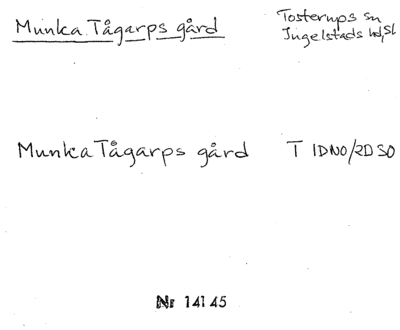 Munka Tågarps gård
Tosterups sn
Ingelstads hd, Sk
Munka Tågarps gård T 1DNO/2DSO
Nr 14145